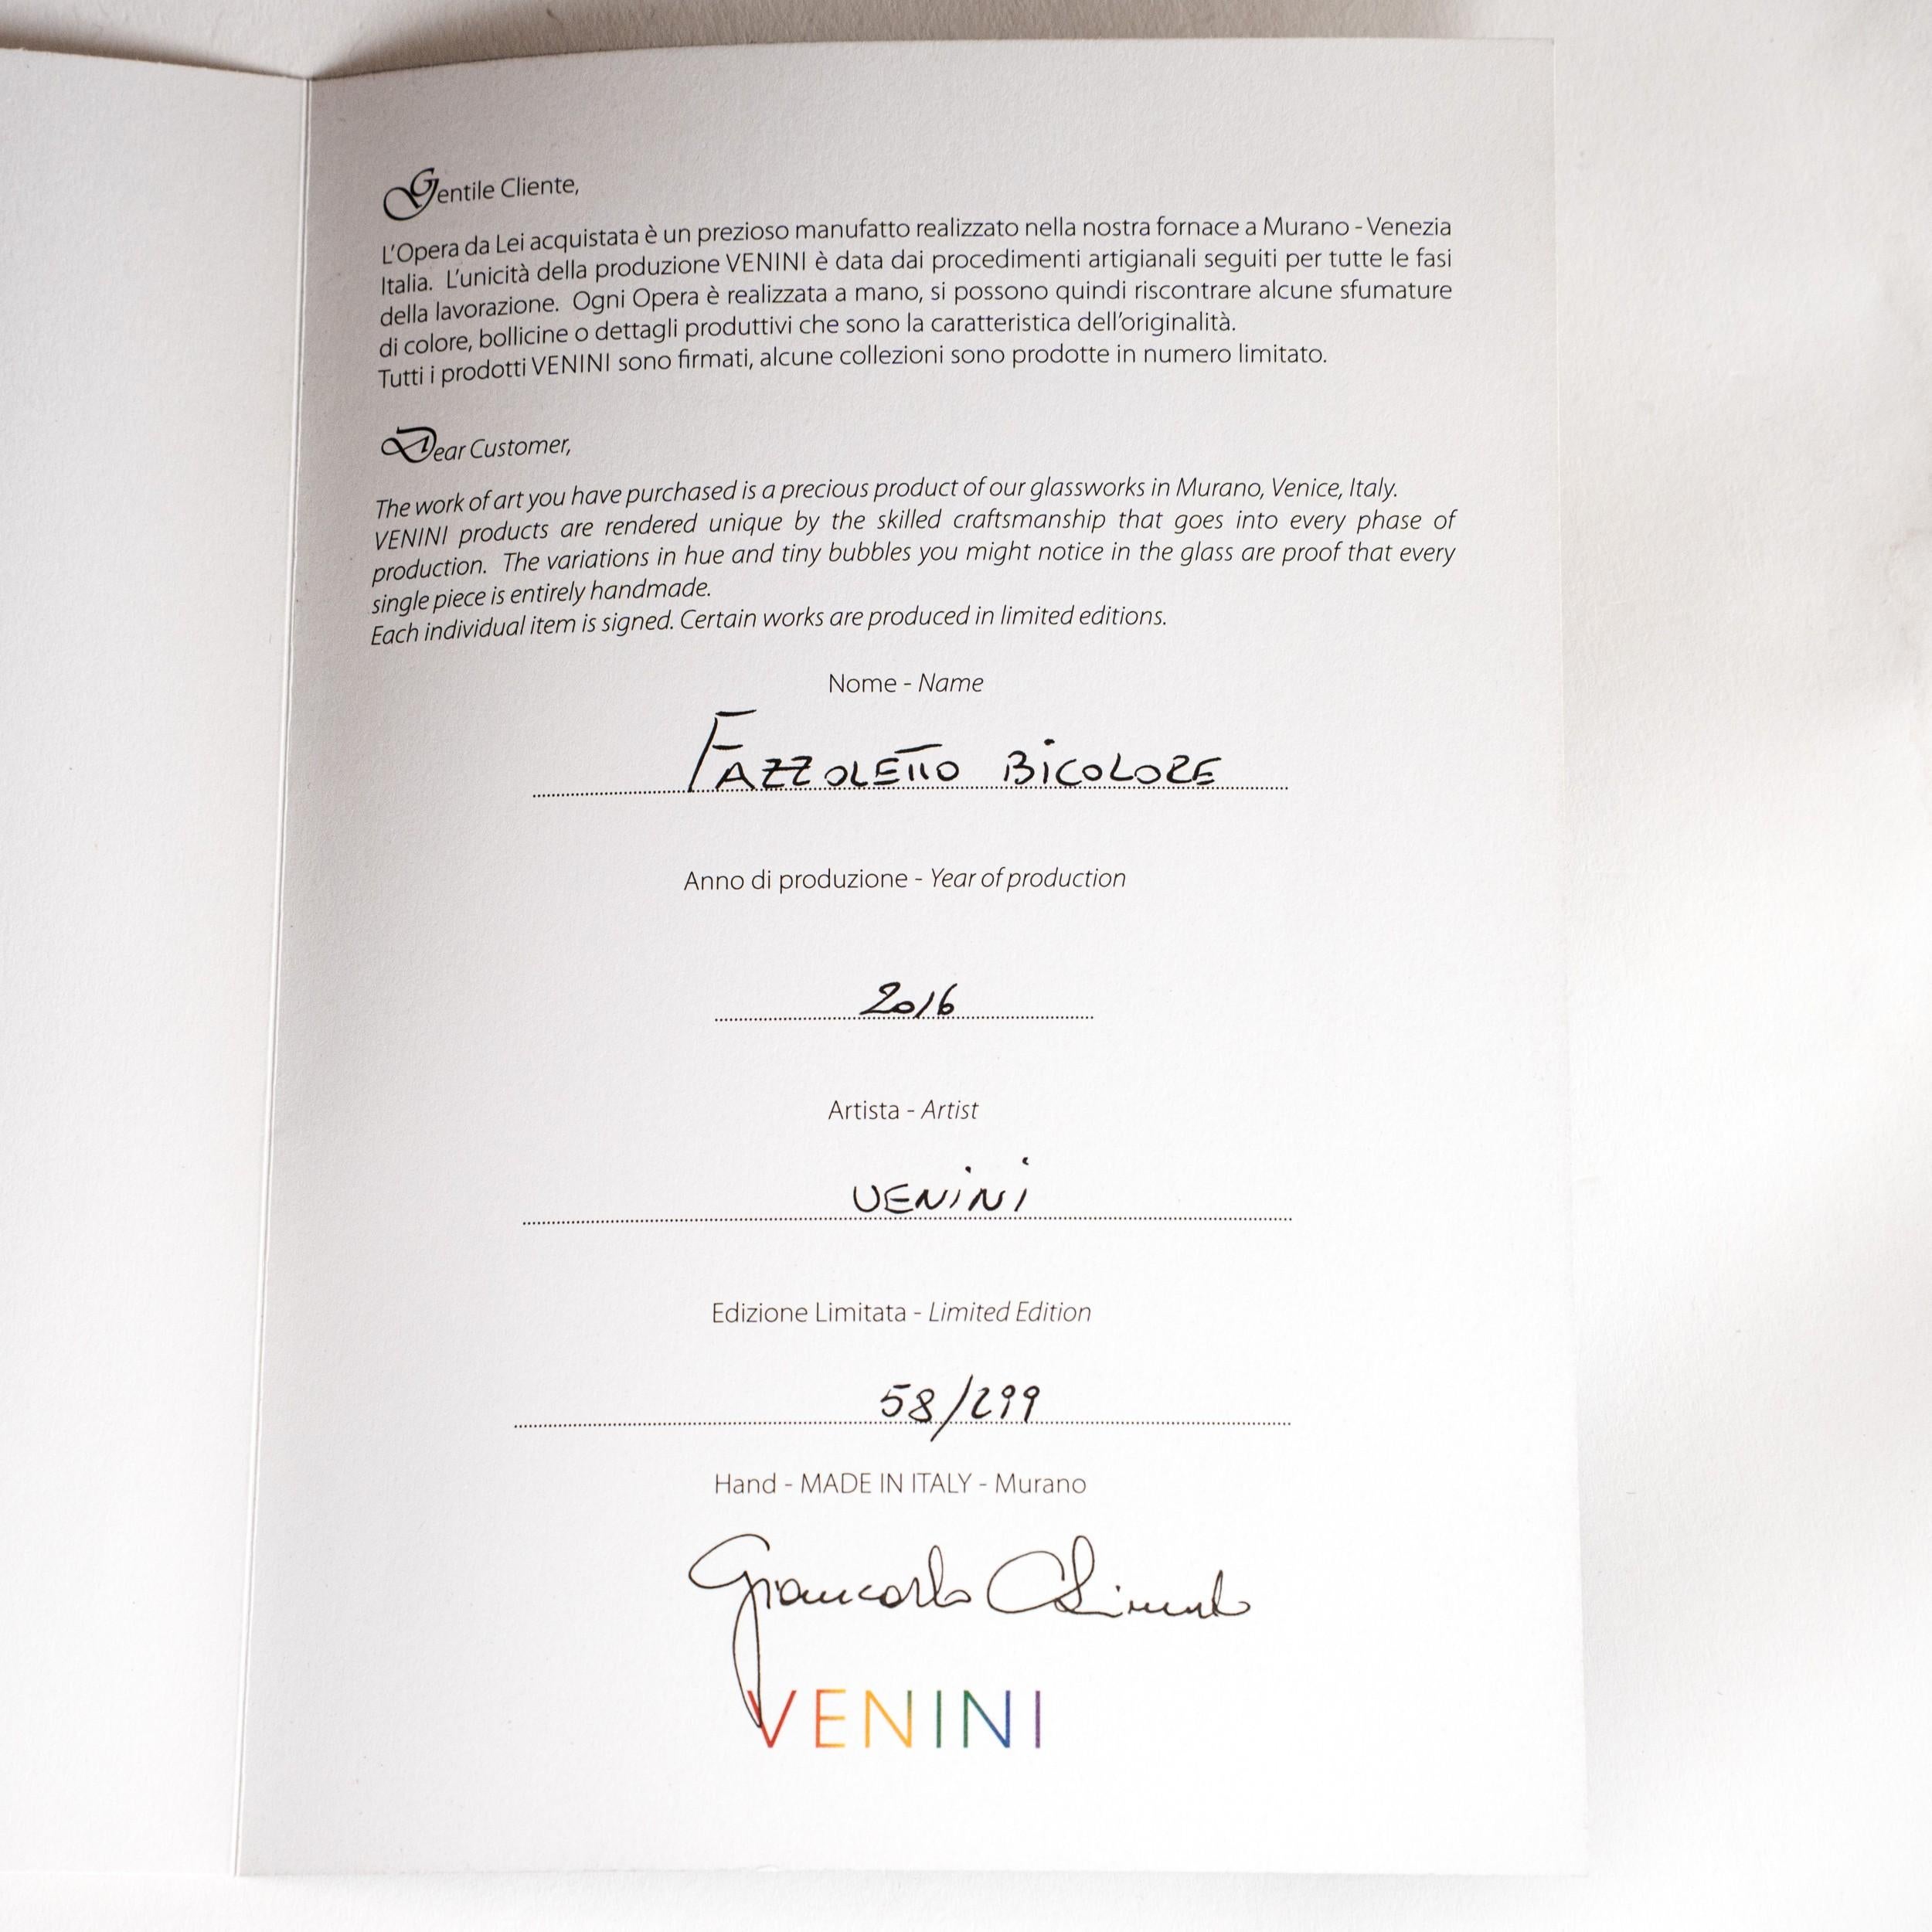 Gentile Cliente,
L'Opera da Lei acquistata è un prezioso manufatto realizzato nella nostra fornace a Murano - Venezia
Italia. L'unicità della produzione VENINI è data dai procedimenti artigianali seguiti per tutte le fasi
della lavorazione. Ogni Opera è realizzata a mano, si possono quindi riscontrare alcune sfumature
di colore, bollicine o dettagli produttivi che sono la caratteristica dell'originalità.
Tutti i prodotti VENINI sono firmati, alcune collezioni sono prodotte in numero limitato.
Dear Customer,
The work of art you have purchased is a precious product of our glassworks in Murano, Venice, Italy.
VENINI products are rendered unique by the skilled craftsmanship that goes into every phase of
production. The variations in hue and tiny bubbles you might notice in the glass are proof that every
single piece is entirely handmade.
Each individual item is signed. Certain works are produced in limited editions.
Nome - Name
FAZZOLETTO BICOLORE
Anno di produzione - Year of production
2016
Artista - Artist
VENINI
Edizione Limitata - Limited Edition
58/299
Hand - MADE IN ITALY - Murano
Giancarlo
VENINI